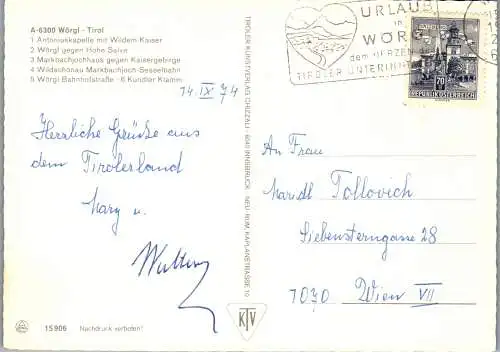 A-6300 Wörgl - Tirol
1 Antoniuskapelle mit Wildem Kaiser
2 Wörgl gegen Hohe Salve
3 Markbachjochhaus gegen Kaisergebirge
4 Wildschönau Markbachjoch-Sesselbahn
5 Wörgl Bahnhofstraße · 6 Kundler Klamm
14. IX 74
Herzliche Grüße aus
dem Tirolerland
Mary u.
Walter
15906 Nachdruck verboten!
TIROLER KUNSTVERLAG CHIZZALI · 6040 INNSBRUCK · NEU-RUM, KAPLANSTRASSE 10
KTV
URLAUB
in
WÖRGL
dem HERZEN des
TIROLER UNTERINN
SALZBURG
70
REPUBLIK ÖSTERREICH
An Frau
Tollovich
Siebensterngasse 28
1070 Wien VII